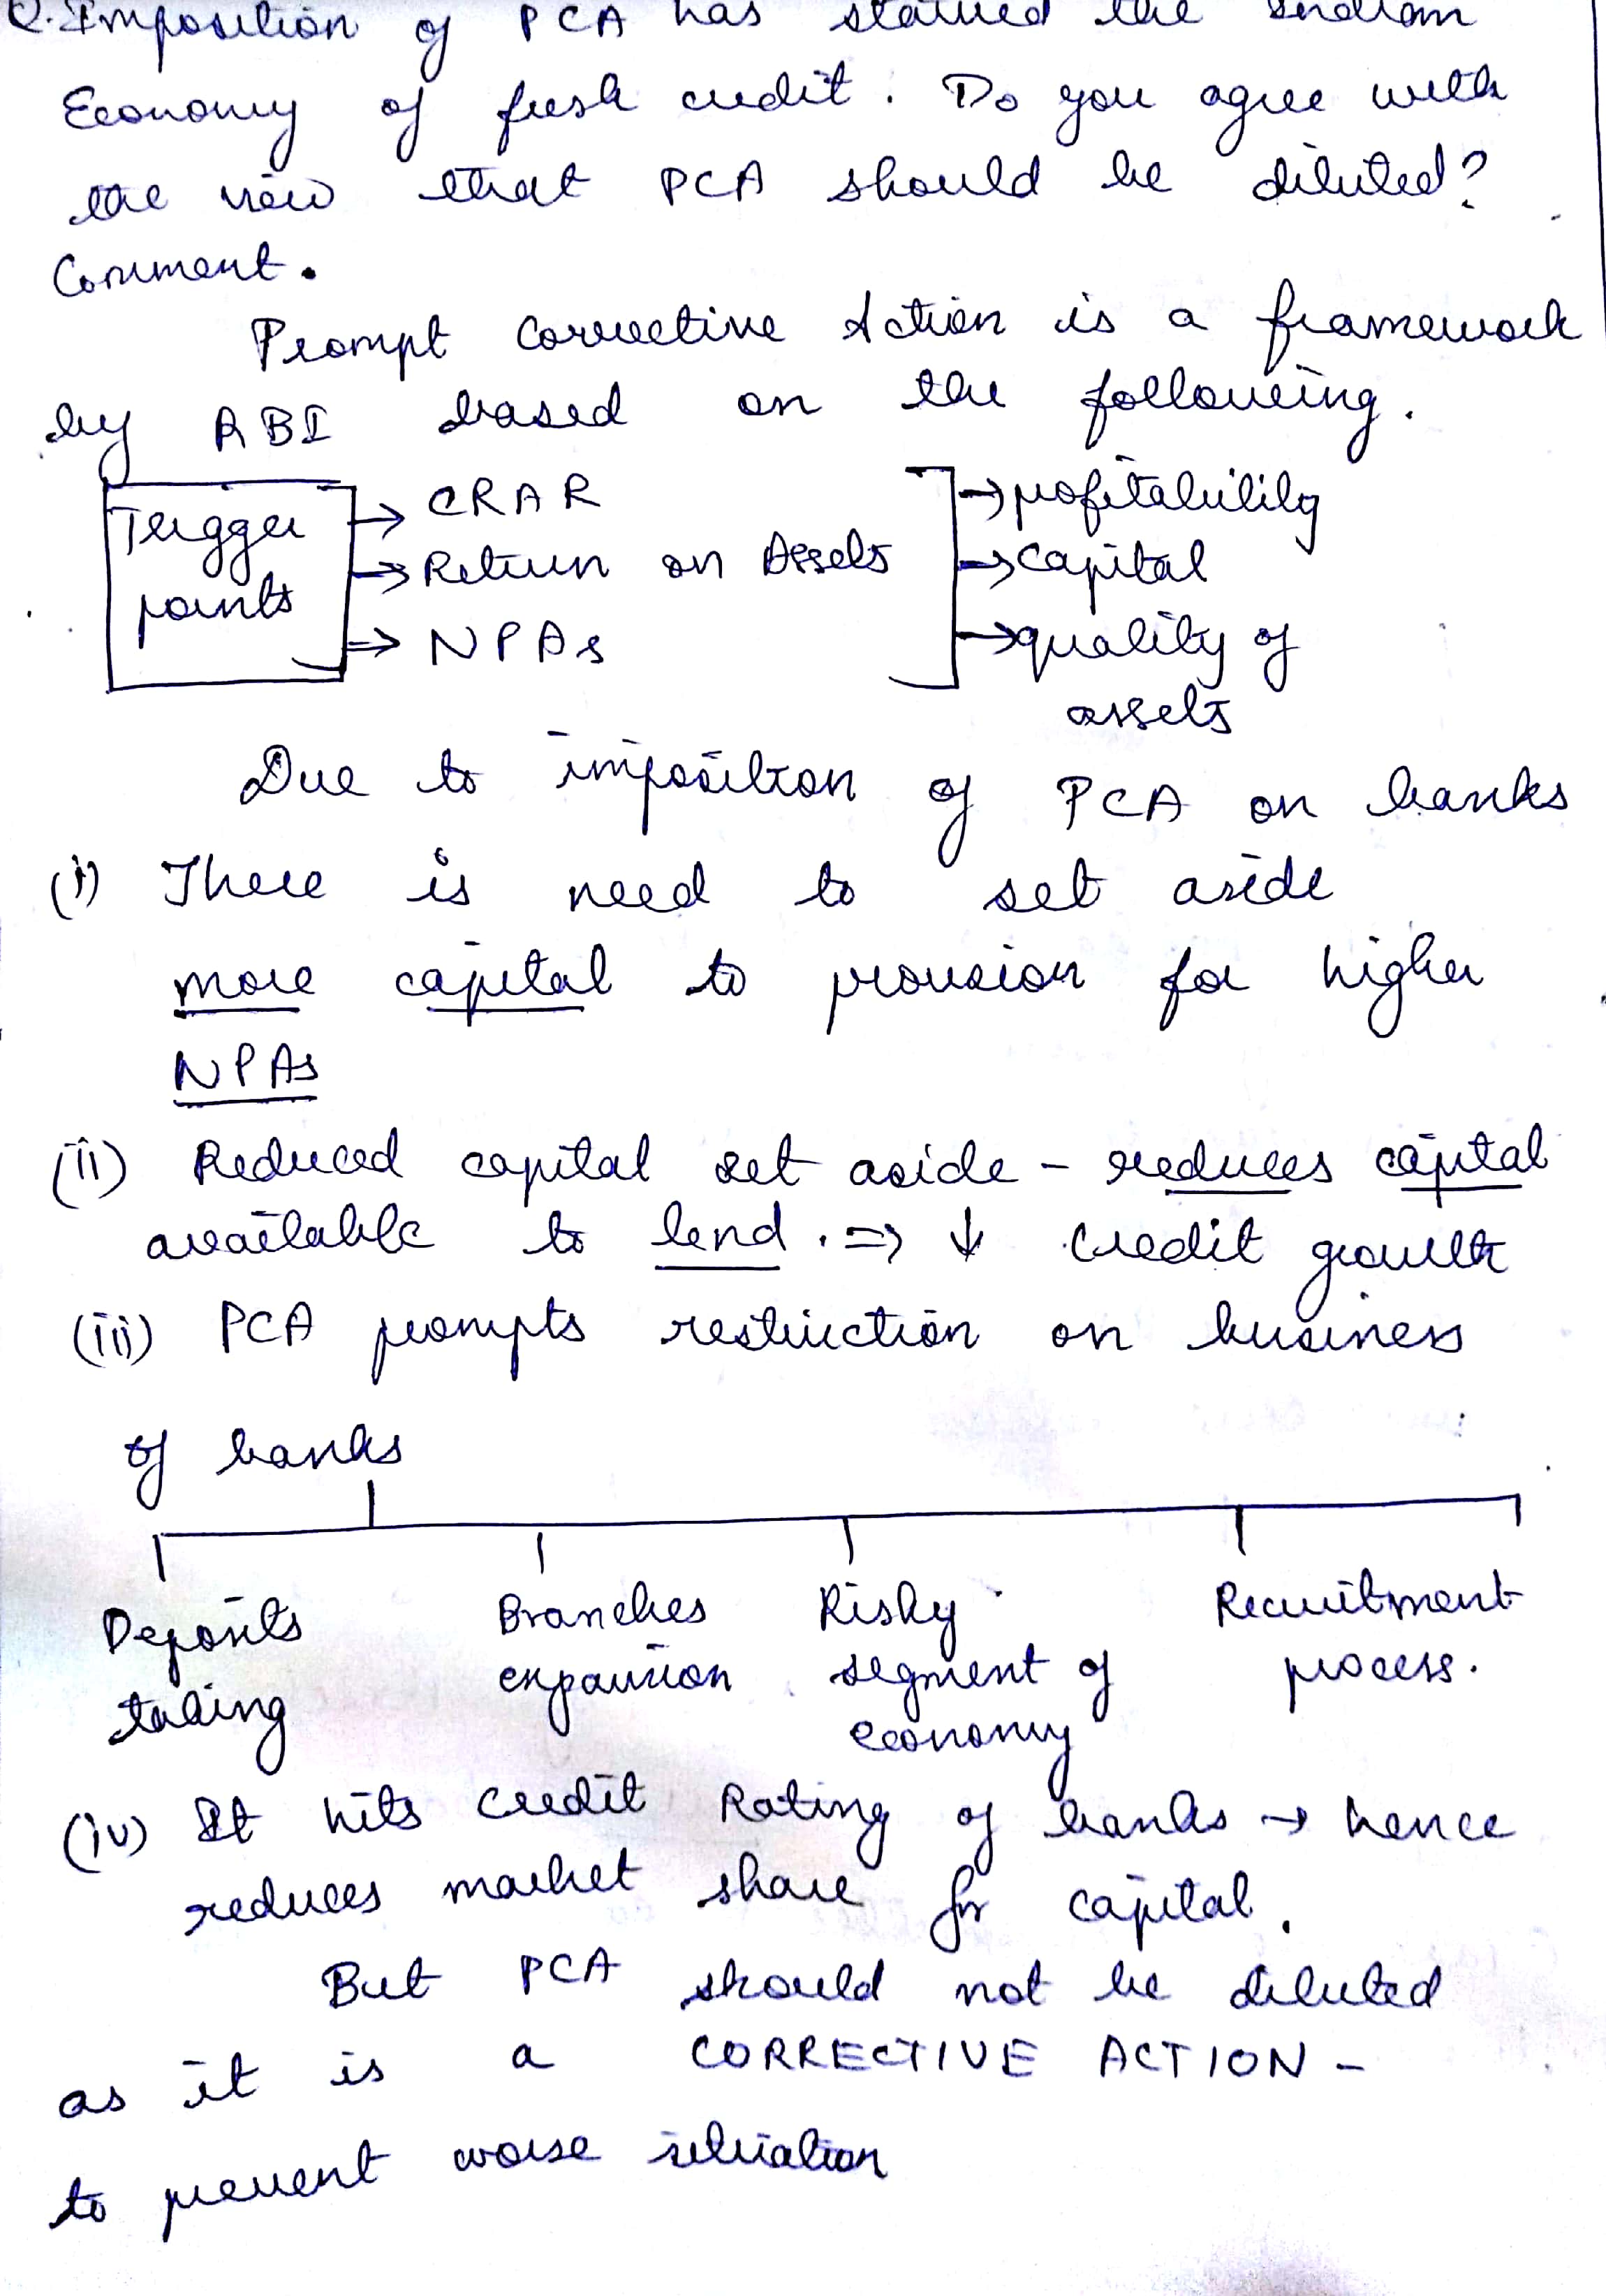 Q. Imposition of PCA has starved the Indian
Economy of fresh credit. Do you agree with
the view that PCA should be diluted?
Comment.
Prompt Corrective Action is a framework
by RBI based on the following.
Trigger points
→ CRAR
→ Return on Assets
→ NPAs
→ profitability
→ capital
→ quality of
assets
Due to imposition of PCA on banks
(i) There is need to set aside
more capital to provision for higher
NPAs
(ii) Reduced capital set aside - reduces capital
available to lend. ⇒ ↓ credit growth
(iii) PCA prompts restriction on business
of banks
Deposits
taking
Branches
expansion
Risky
segment of
economy
Recruitment
process.
(iv) It hits credit Rating of banks → hence
reduces market share for capital.
But PCA should not be diluted
as it is a CORRECTIVE ACTION -
to prevent worse situation